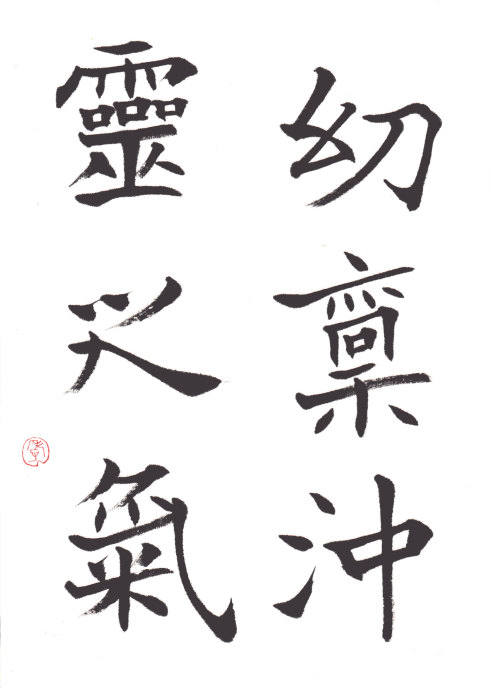 幼稟沖
靈之氣